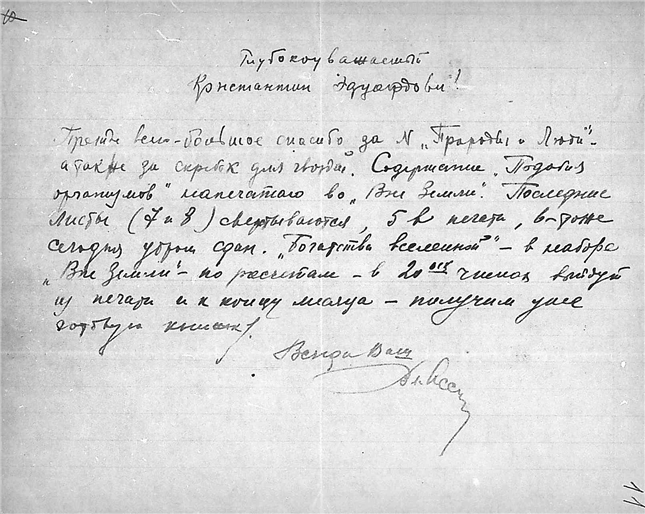 Глубокоуважаемый
Константин Эдуардович!
Прежде всего большое спасибо за N "Природы и Люди"-
а также за скребок для гвоздей. Содержание "Подобия
организмов" напечатаю во "Вне Земли". Последние
Листы (7 и 8) свертываются, 5 в печати, 6-тоже
сегодня утром сдан. "Богатства вселенной" - в наборе
"Вне Земли" - по рассчетам - в 20ых числах выйдут
из печати и к концу месяца - получим уже
готовую книжку!
Всегда Ваш
11